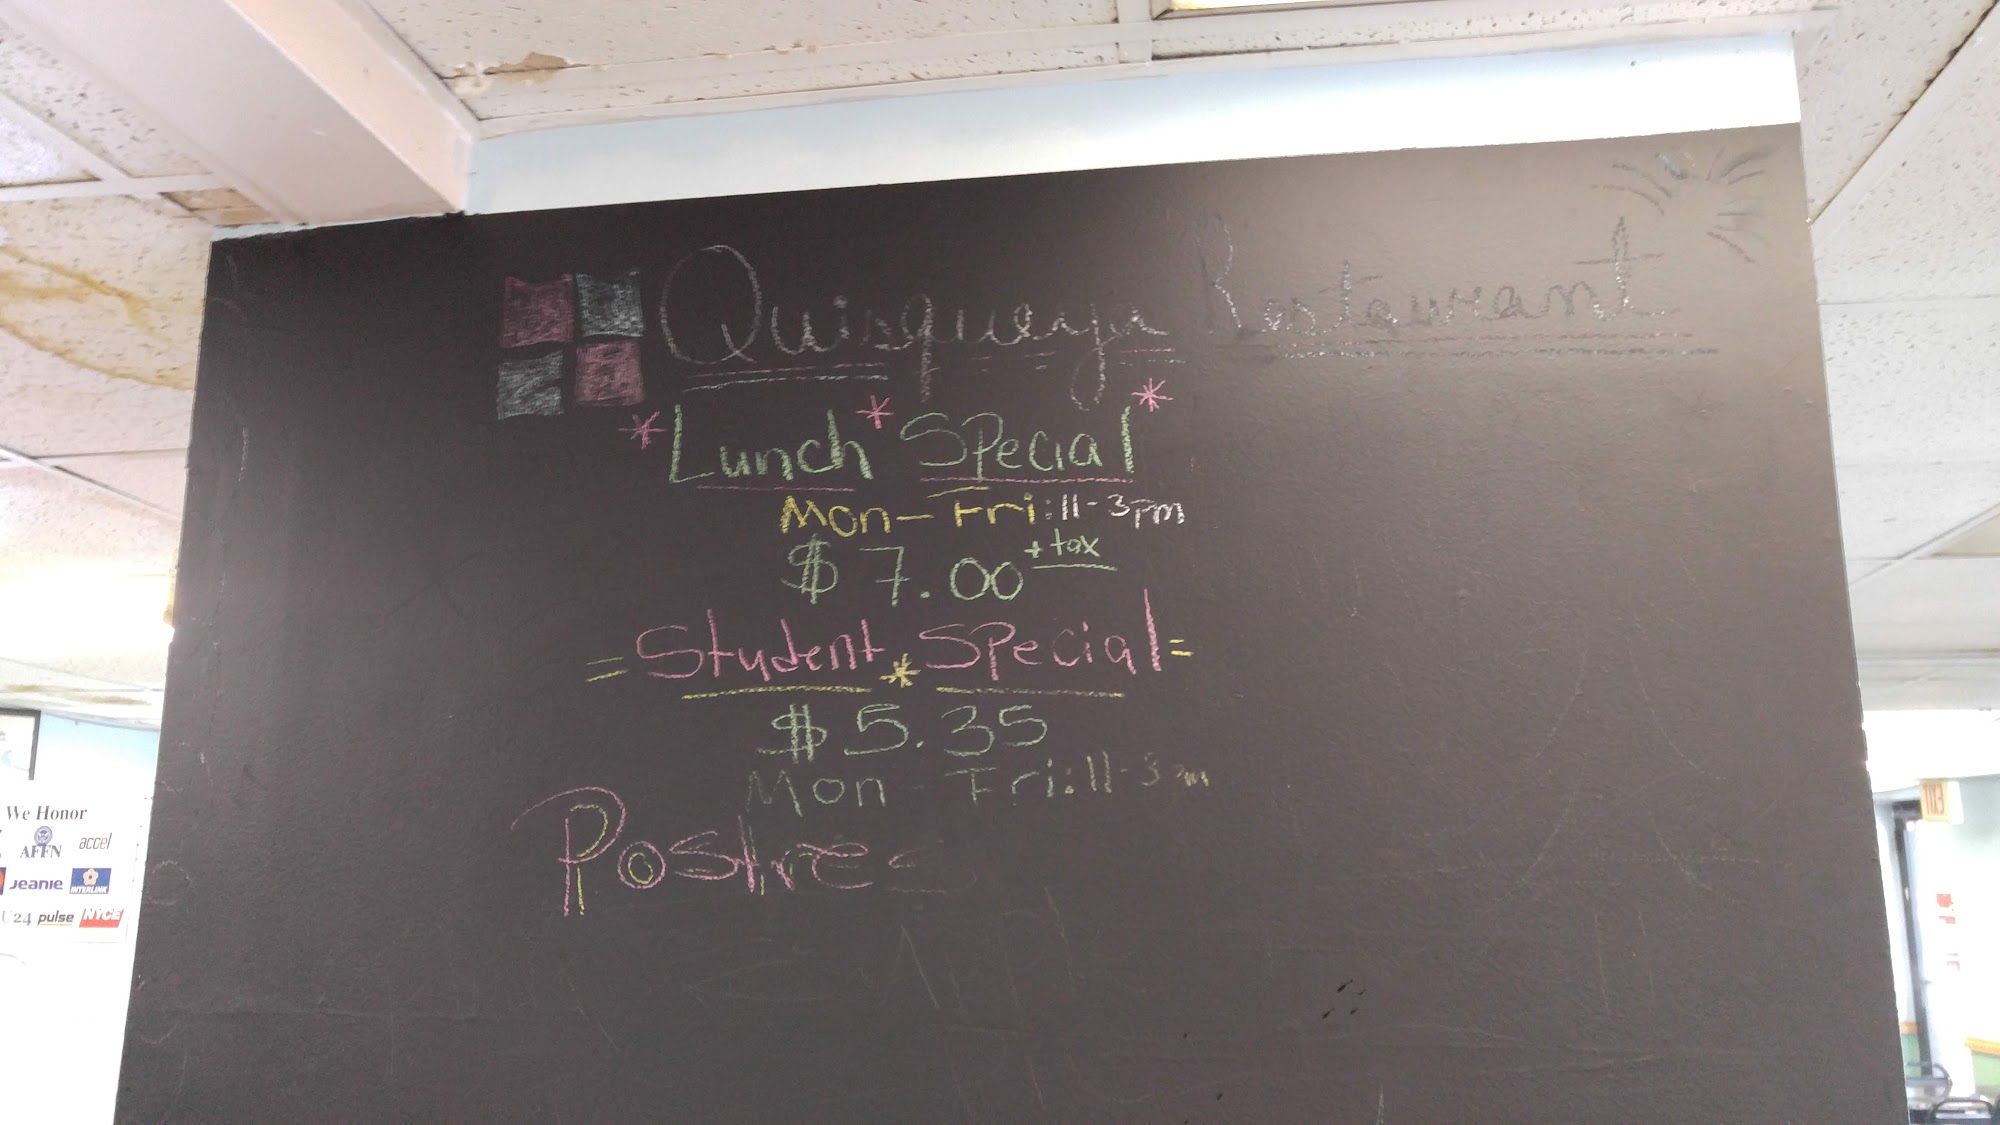 Quisqueya Restaurant
*Lunch* Special*
Mon-Fri:11-3pm
$7.00 + tax
=Student * Special=
$5.35
Mon-Fri:11-3pm
Postres
We Honor
AFFN accel
Jeanie INTERLINK
U24 pulse NYCE